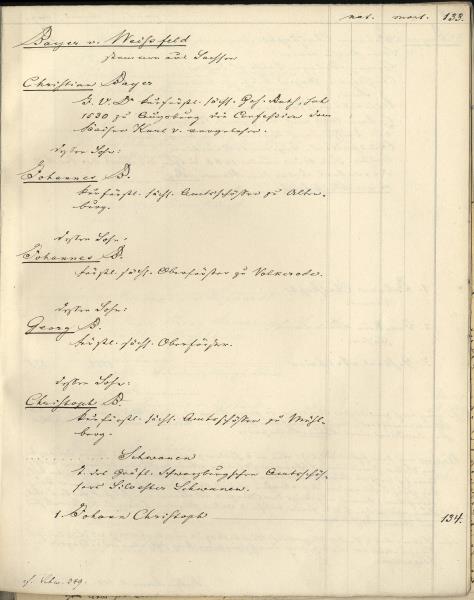 nat. mort. 133.
Bayer v. Weissfeld
stammen aus Sachsen
Christian Bayer
J. V. Dr kurfürstl. sächs. Geh. Rath, hat
1530 zu Augsburg die Confession dem
Kaiser Karl V. vorgelesen.
dessen Sohn:
Johannes B.
kurfürstl. sächs. Amtsschösser zu Alten-
burg.
dessen Sohn:
Johannes B.
fürstl. sächs. Oberförster zu Volkerode.
dessen Sohn:
Georg B.
fürstl. sächs. Oberförster.
dessen Sohn:
Christoph B.
kurfürstl. sächs. Amtsschösser zu Mühl-
berg.
Schwanen
T. des Gräfl. Schwarzburgschen Amtsschös-
sers Silvester Schwanen.
1. Johann Christoph 134.